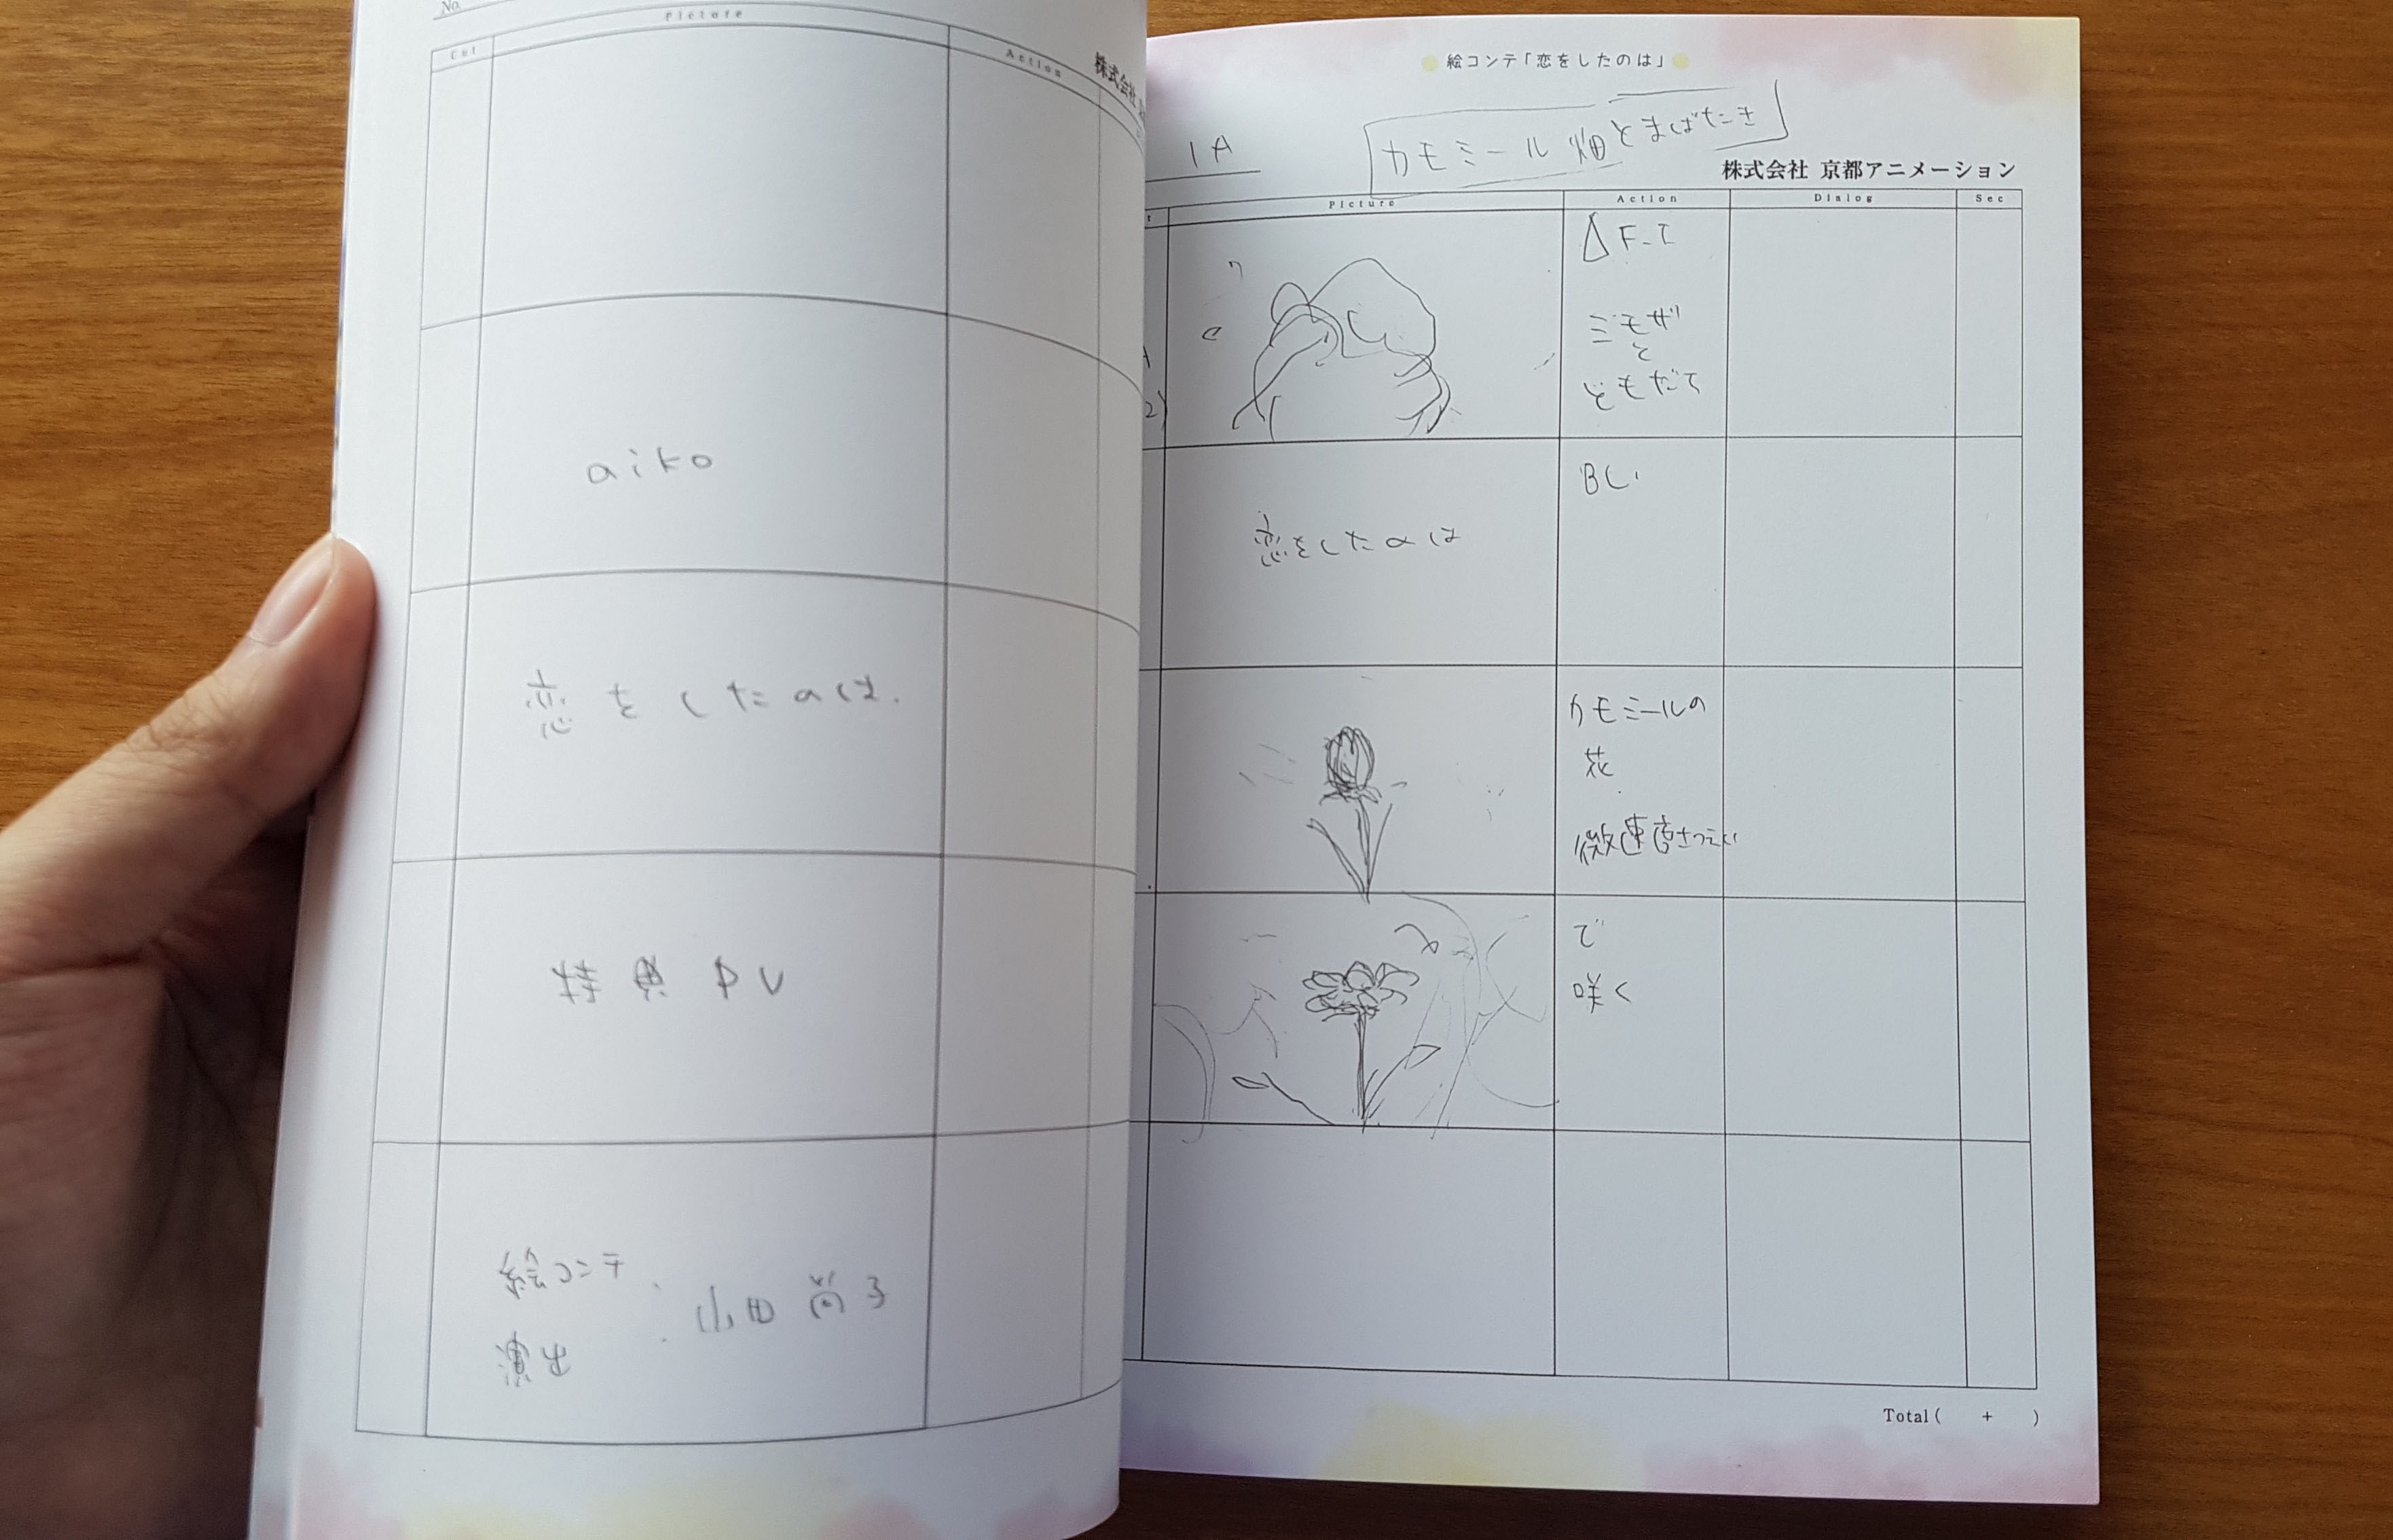 No.
Cut
Picture
Action
株式会社
aiko
恋をしたのは.
特典PV
絵コンテ
演出
: 山田尚子
絵コンテ「恋をしたのは」
1A
カモミール畑とまばたき
株式会社 京都アニメーション
Picture
Action
Dialog
Sec
2)
ΔF-I
ミモザ
と
ともだて
恋をしたのは
BL
カモミールの
花
微速度さつえい
で
咲く
Total( + )